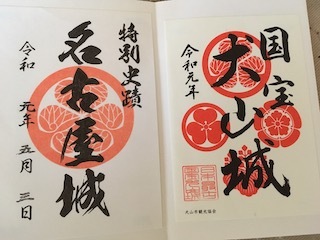 特別史蹟
名古屋城
令和 元年 五月 三日
国宝
犬山城
令和元年
犬山市観光協会